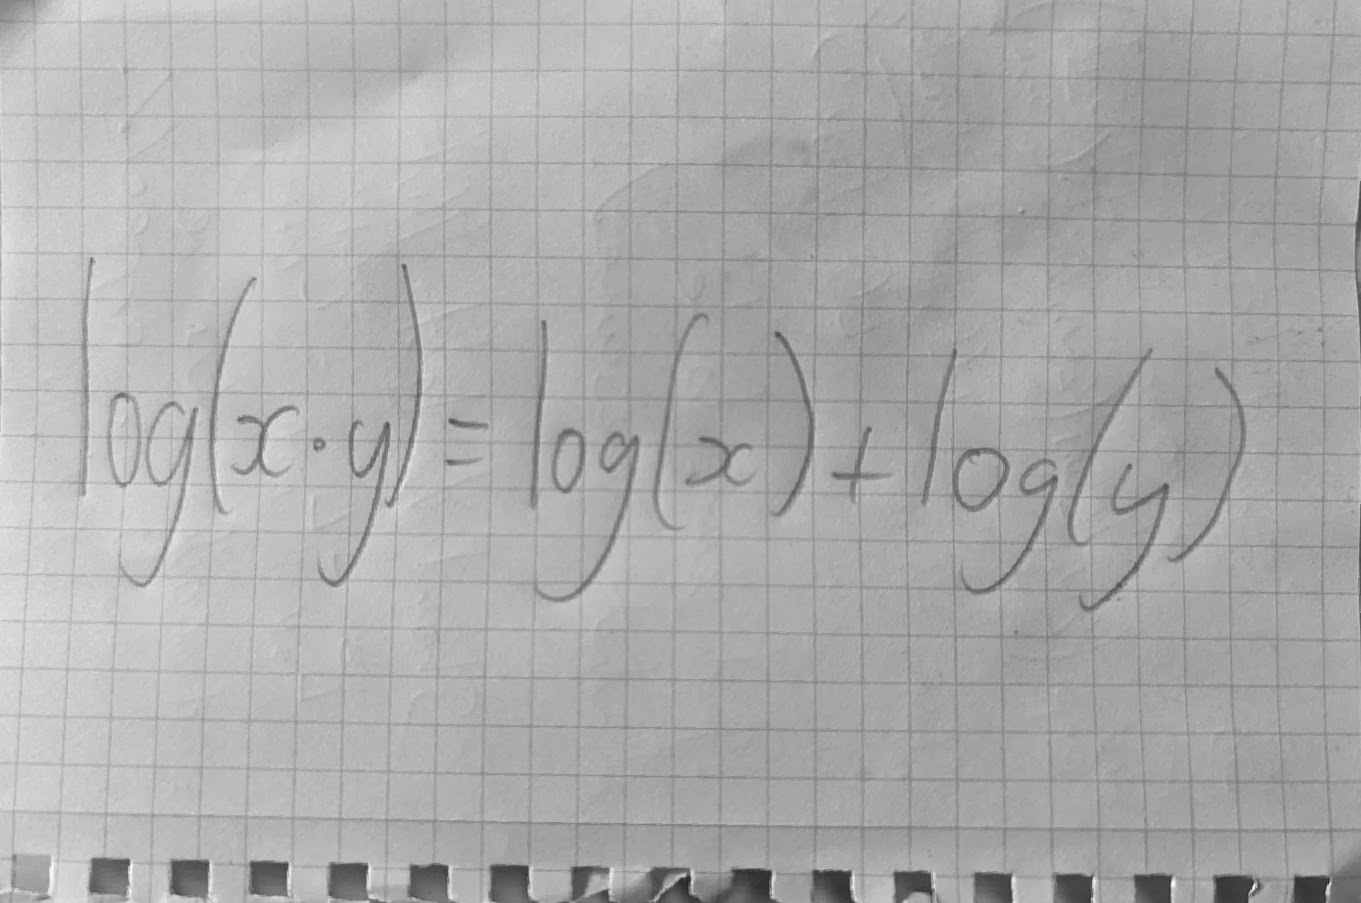 log(x·y)=log(x)+log(y)